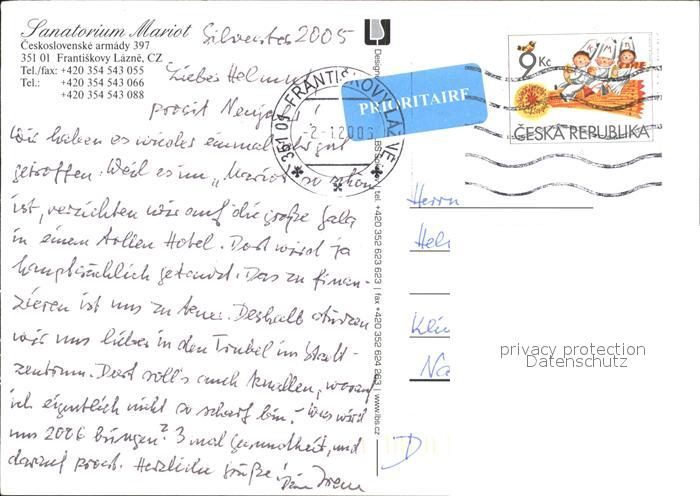 Sanatorium Mariot
Československé armády 397
351 01 Františkovy Lázně, CZ
Tel./fax: +420 354 543 055
Tel.: +420 354 543 066
+420 354 543 088
Silvester 2005
Lieber Helmut
prosit Neujahr!
Wir haben es wieder einmal sehr gut
getroffen. Weil es im "Mariot" so schön
ist, verzichten wir auf die große Gala
in einem tollen Hotel. Dort wird ja
hauptsächlich getanzt. Das zu finan-
zieren ist uns zu teuer. Deshalb stürzen
wir uns lieber in den Trubel im Stadt-
zentrum. Dort soll's auch knallen, worauf
ich eigentlich nicht so scharf bin. Was wird
uns 2006 bringen? 3 mal Gesundheit, und
darauf prost. Herzliche Grüße! Deine Irene
351 01 FRANTIŠKOVY LÁZNĚ
-2-1.2006
PRIORITAIRE
Design
tel. +420 352 623 623 | fax +420 352 624 263 | www.lbs.cz
9 Kč
K M B
ČESKÁ REPUBLIKA
Herrn
Hel
Na
D
privacy protection
Datenschutz